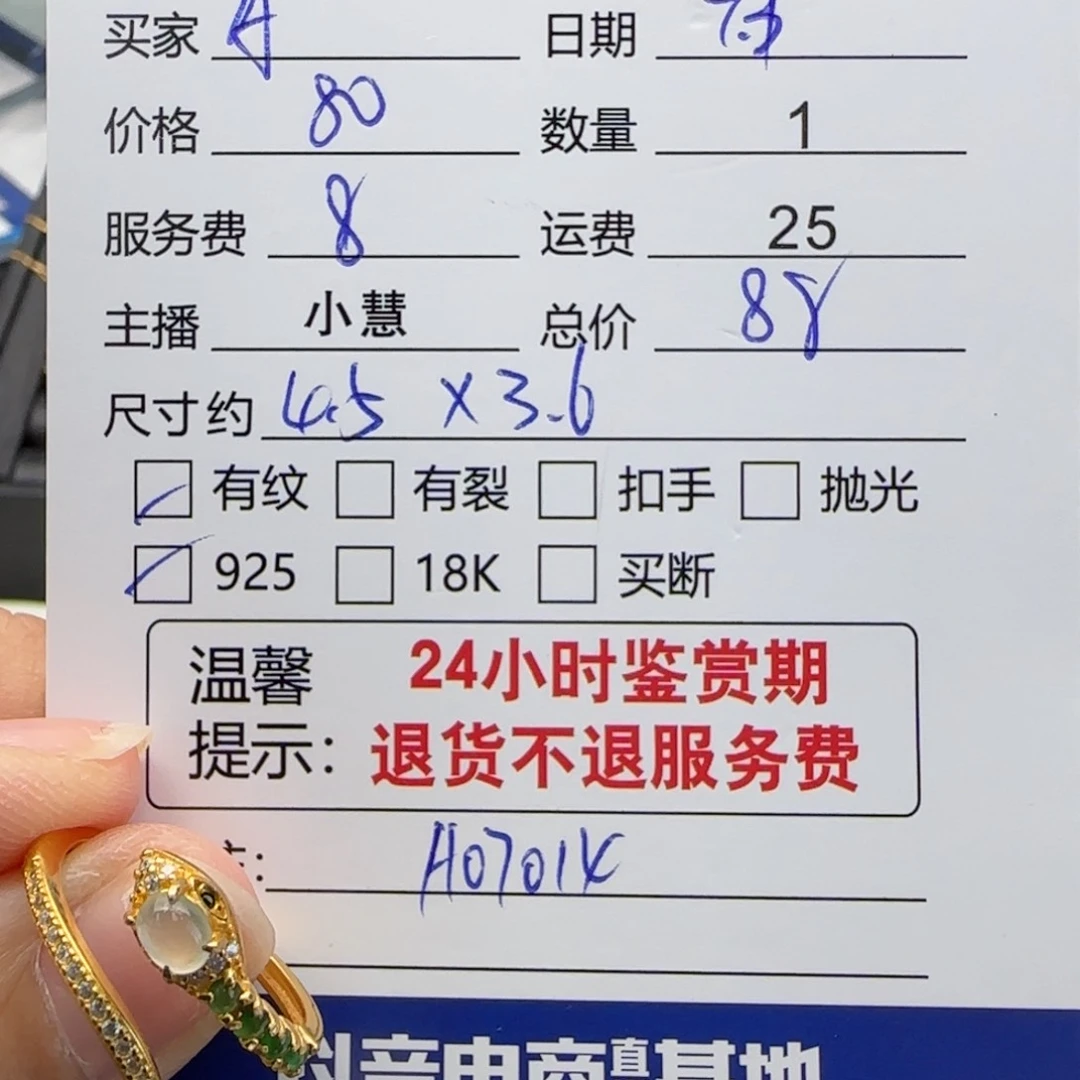 买家 A 日期
价格 80 数量 1
服务费 8 运费 25
主播 小慧 总价 88
尺寸约 4.5 × 3.6
有纹 有裂 扣手 抛光
925 18K 买断
温馨提示： 24小时鉴赏期
退货不退服务费
A0701
抖音电商直基地